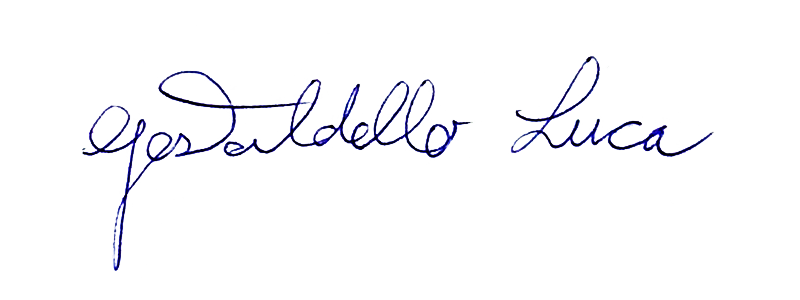 Gastaldello Luca